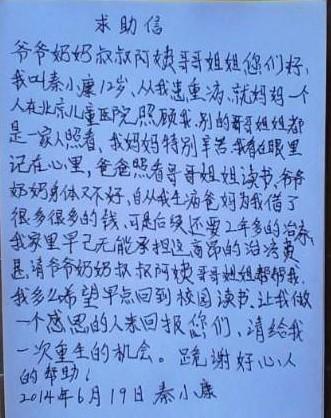 求助信
爷爷奶奶叔叔阿姨哥哥姐姐您们好,
我叫秦小康12岁、从我患重病、就妈妈一个
人在北京儿童医院照顾我、别的哥哥姐姐都
是一家人照看、我妈妈特别辛苦我看在眼里
记在心里,爸爸照看哥哥姐姐读书、爷爷
奶奶身体又不好,自从我生病爸妈为我借了
很多很多的钱、可是后续还要2年多的治疗、
我家里早已无能承担这高昂的治疗费
甚.请爷爷奶奶叔叔阿姨哥哥姐姐帮帮我.
我多么希望早点回到校园读书、让我做
一个感恩的人来回报您们、请给我
一次重生的机会。跪谢好心人
的帮助!
2014年6月19日 秦小康